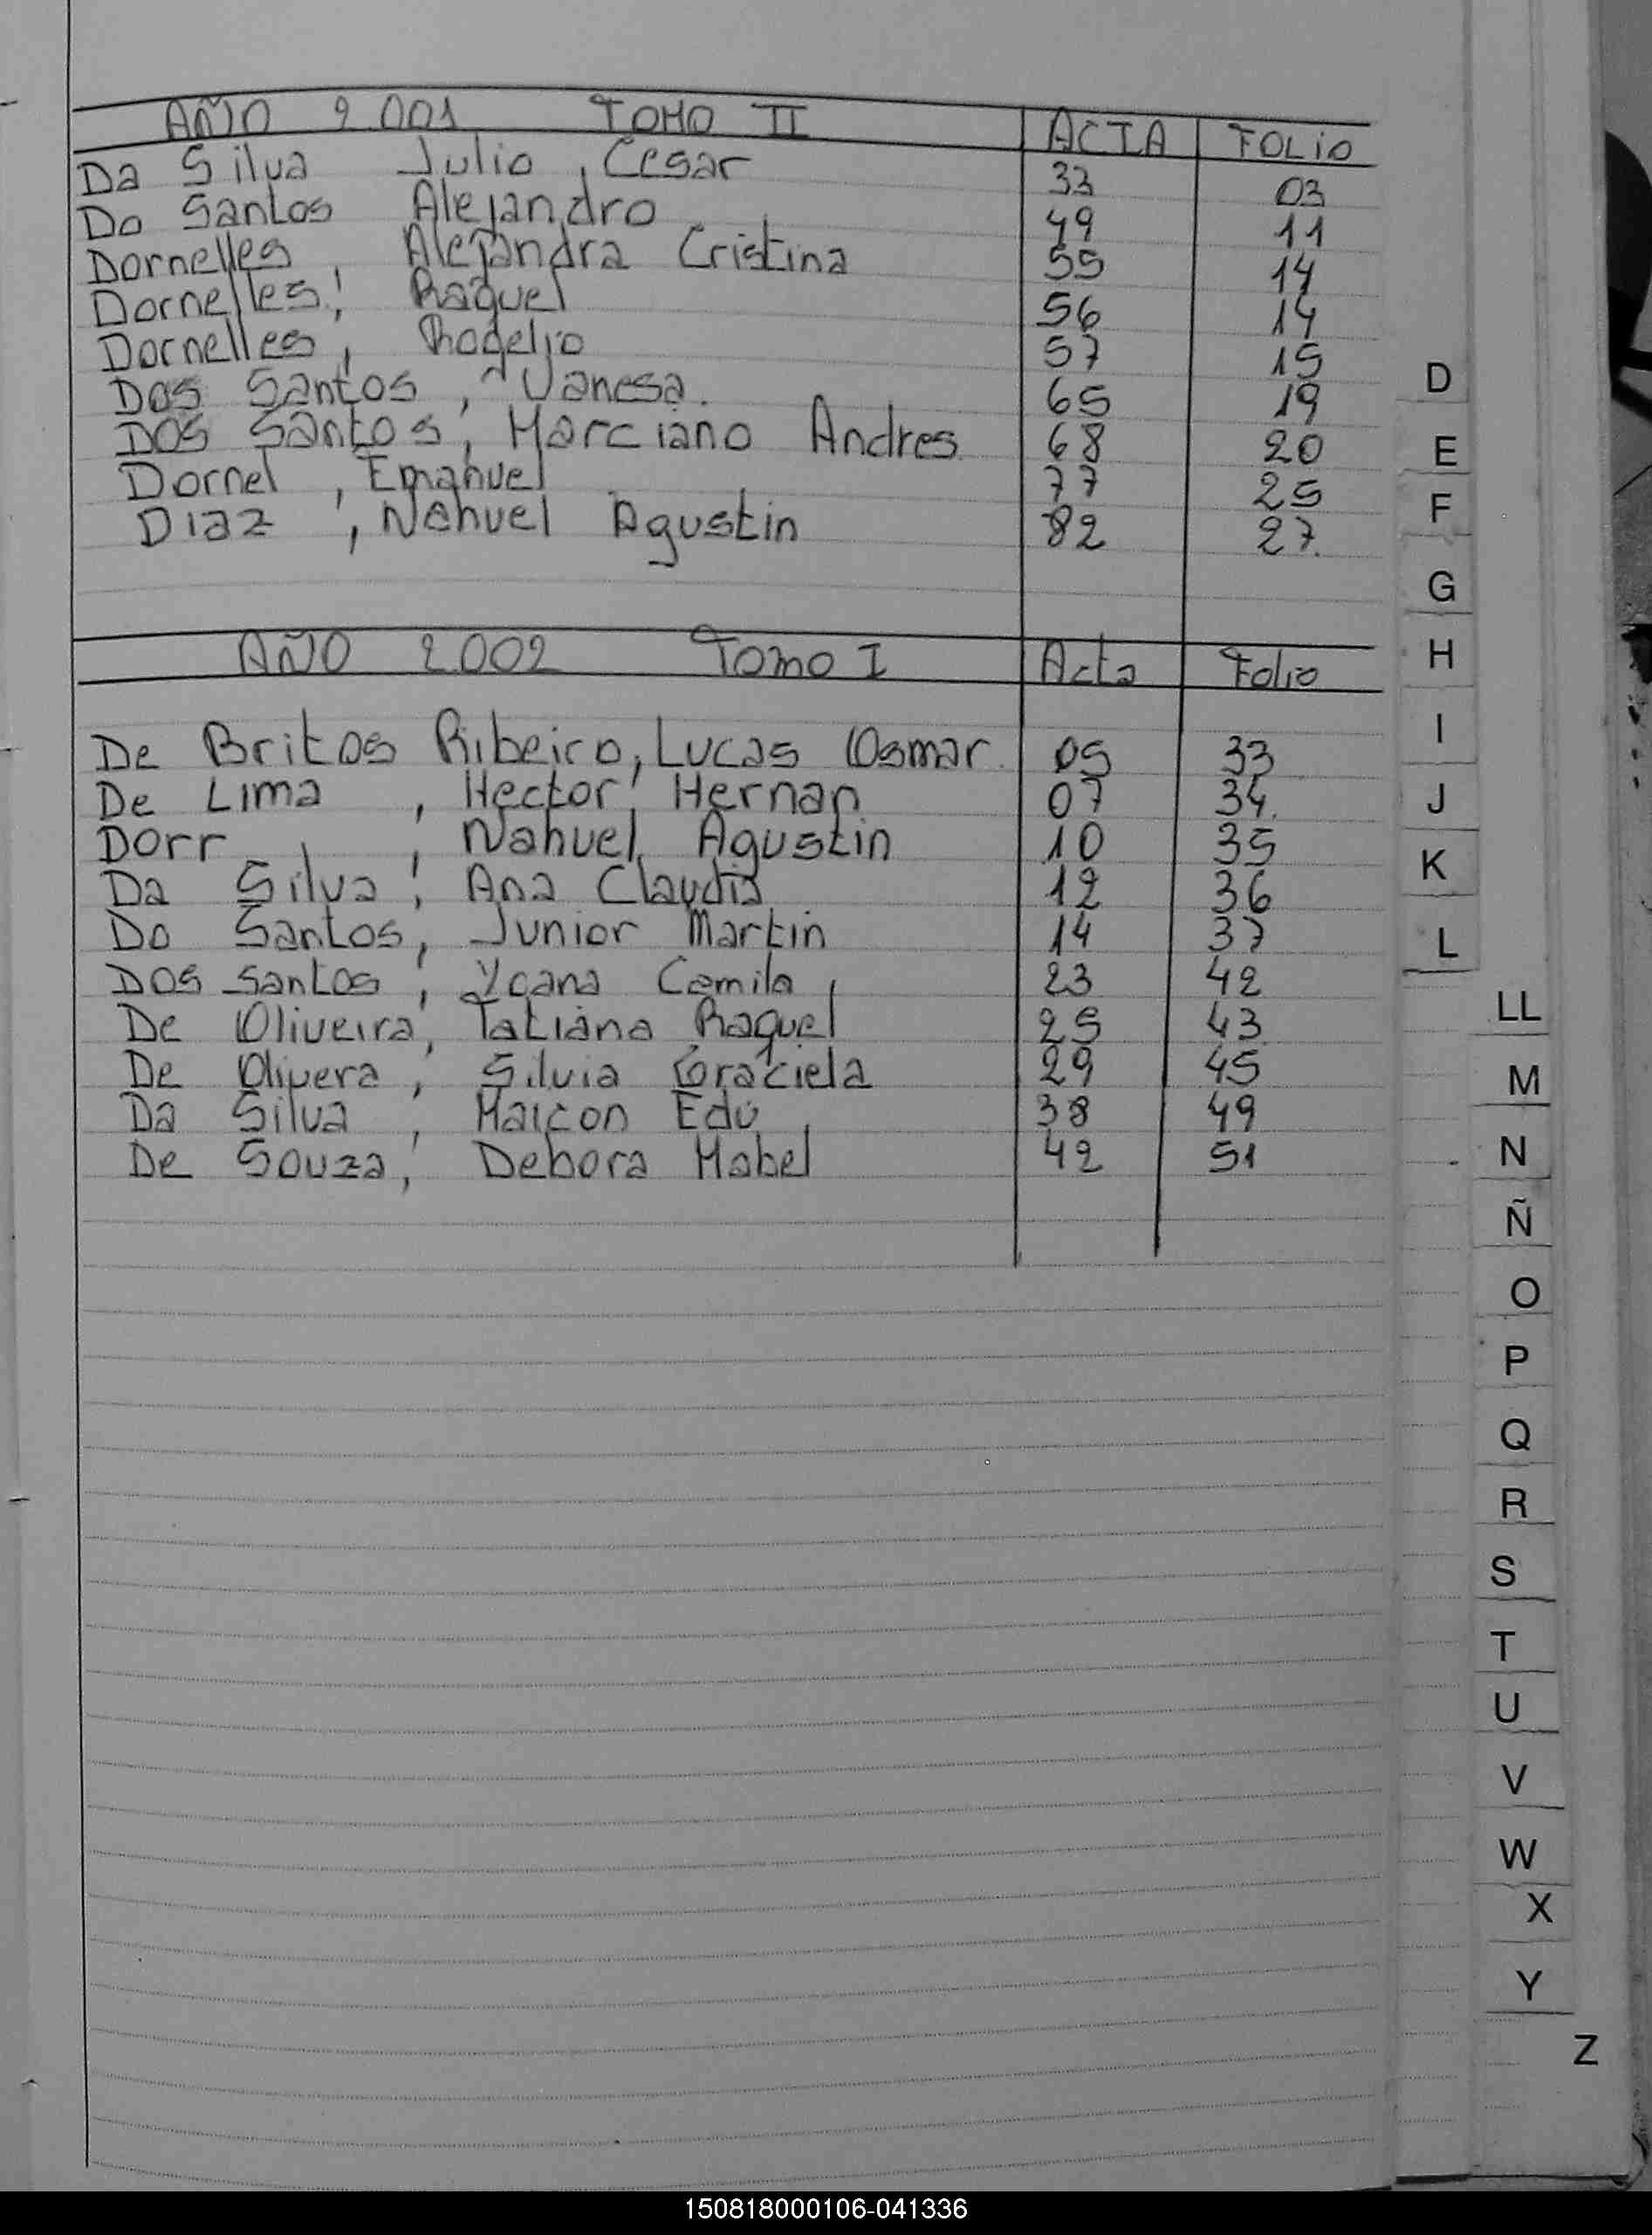 AÑO 2001 TOMO II ACTA FOLIO
Da Silva Julio, Cesar 33 03
Do Santos Alejandro 49 11
Dornelles Alejandra Cristina 55 14
Dornelles, Raquel 56 14
Dornelles, Rogelio 57 15
Dos Santos, Vanesa. 65 19
Dos Santos, Marciano Andres 68 20
Dornel, Emanuel 77 25
Diaz, Nahuel Agustin 82 27.
AÑO 2002 Tomo I Acta Folio
De Britos Ribeiro, Lucas Osmar 05 33
De Lima, Hector Hernan 07 34.
Dorr, Nahuel Agustin 10 35
Da Silva, Ana Claudia 12 36
Do Santos, Junior Martin 14 37
Dos santos, Yoana Camila 23 42
De Oliveira, Tatiana Raquel 25 43
De Olivera, Silvia Graciela 29 45
Da Silva, Maicon Edu 38 49
De Souza, Debora Mabel 42 51
D
E
F
G
H
I
J
K
L
LL
M
N
Ñ
O
P
Q
R
S
T
U
V
W
X
Y
Z
150818000106-041336